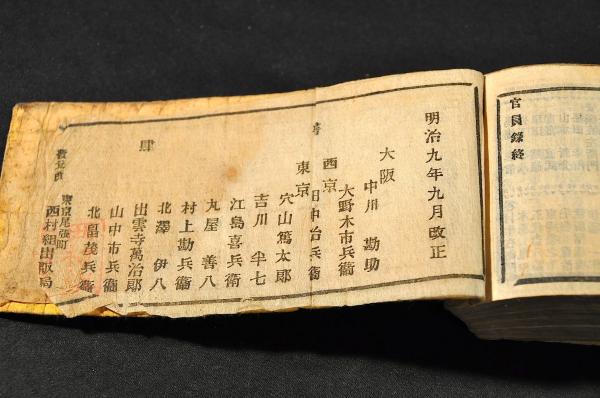 官員録終
明治九年九月改正
大阪
中川勘助
大野木市兵衞
西京
田中治兵衞
東京
穴山篤太郎
吉川半七
江島喜兵衞
丸屋善八
村上勘兵衞
北澤伊八
出雲寺萬治郎
山中市兵衞
北畠茂兵衞
東京尾張町
西村組出版局
書
肆